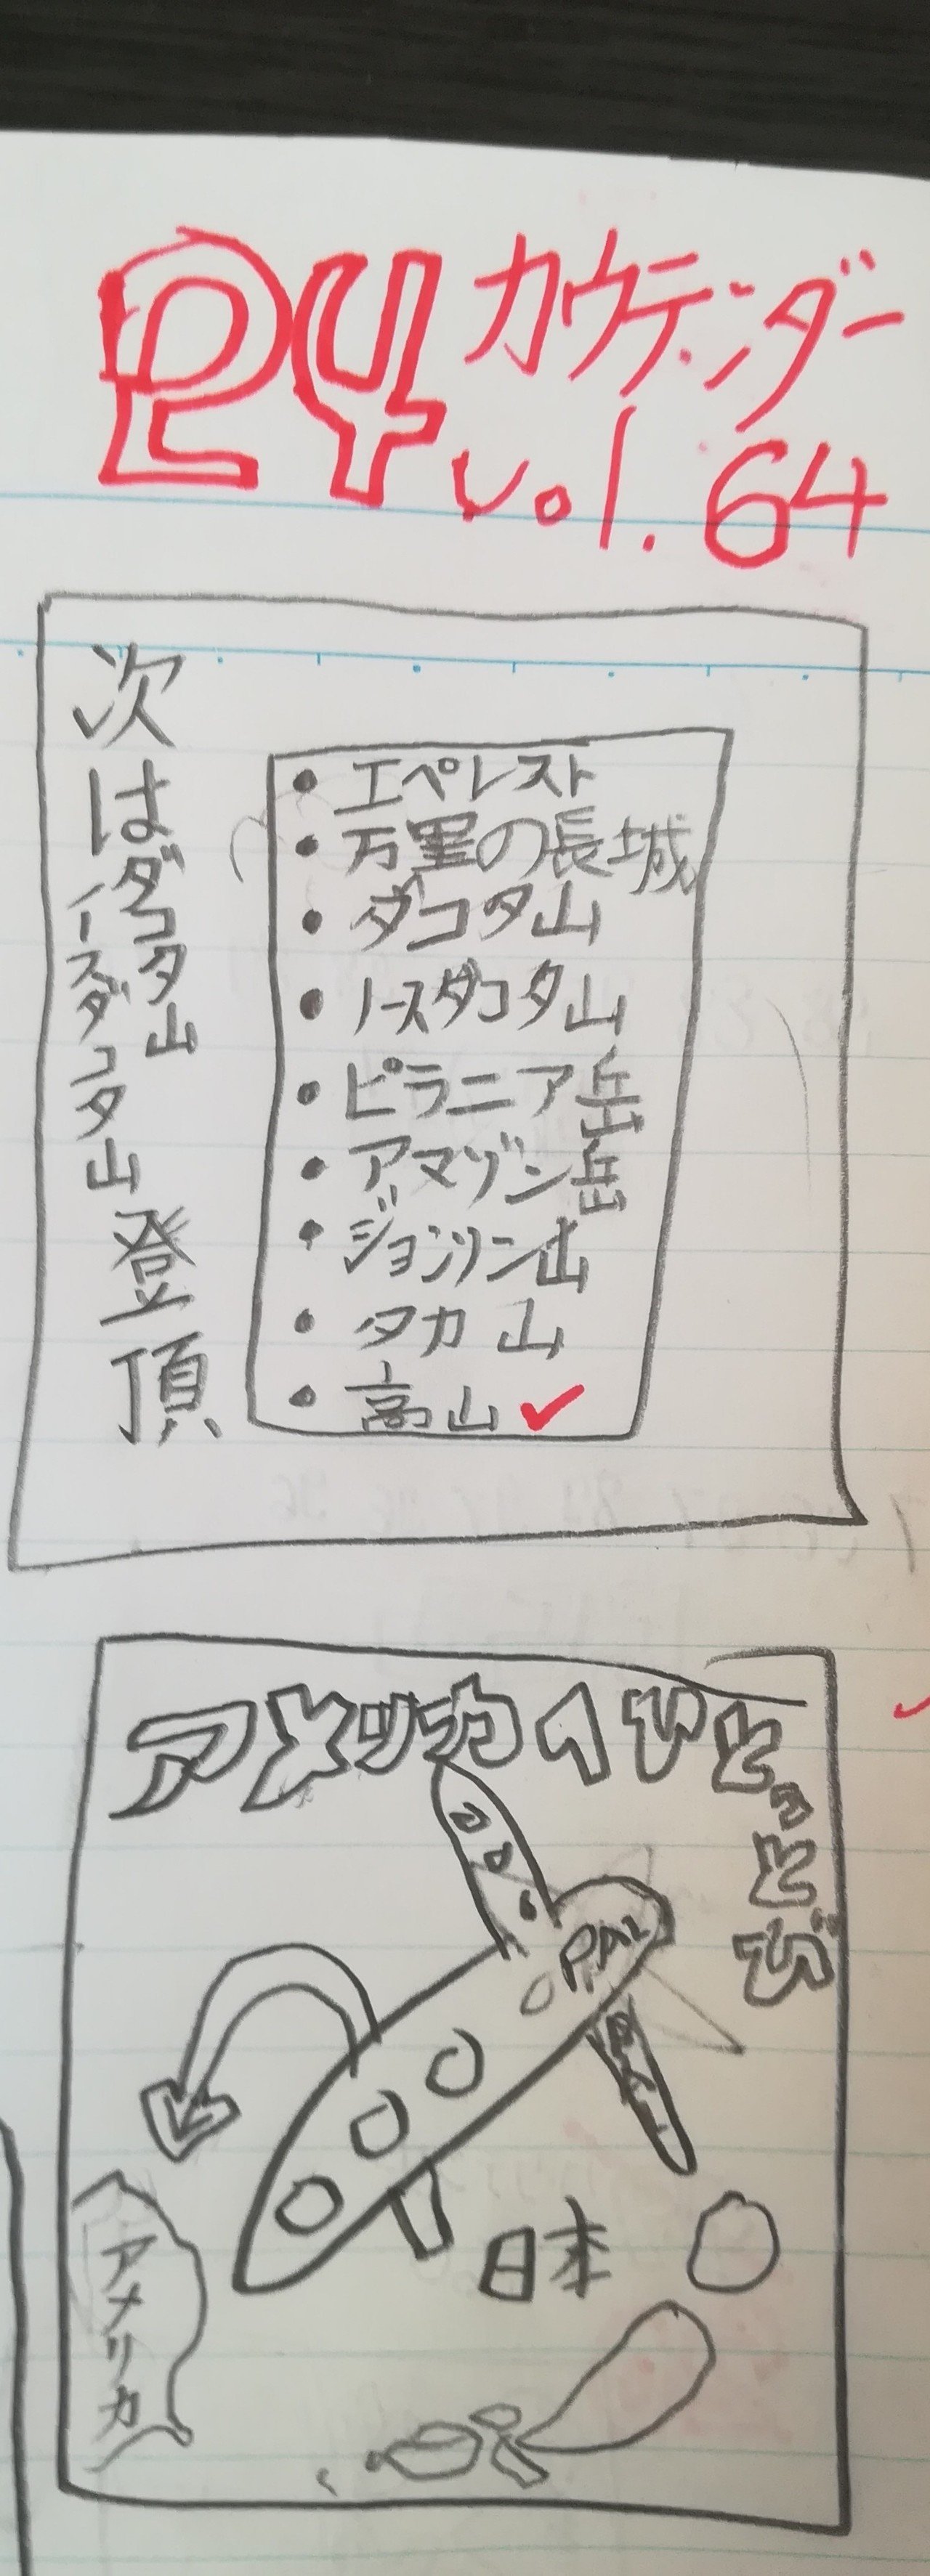 24カウテンダー
vol.64
次はダコタ山
イースダコタ山
登頂
・エペレスト
・万里の長城
・ダコタ山
・ノースダコタ山
・ピラニア岳
・アマゾン岳
・ジョンソン山
・タカ山
・高山✓
アメリカイやとっとび
アメリカ
日本